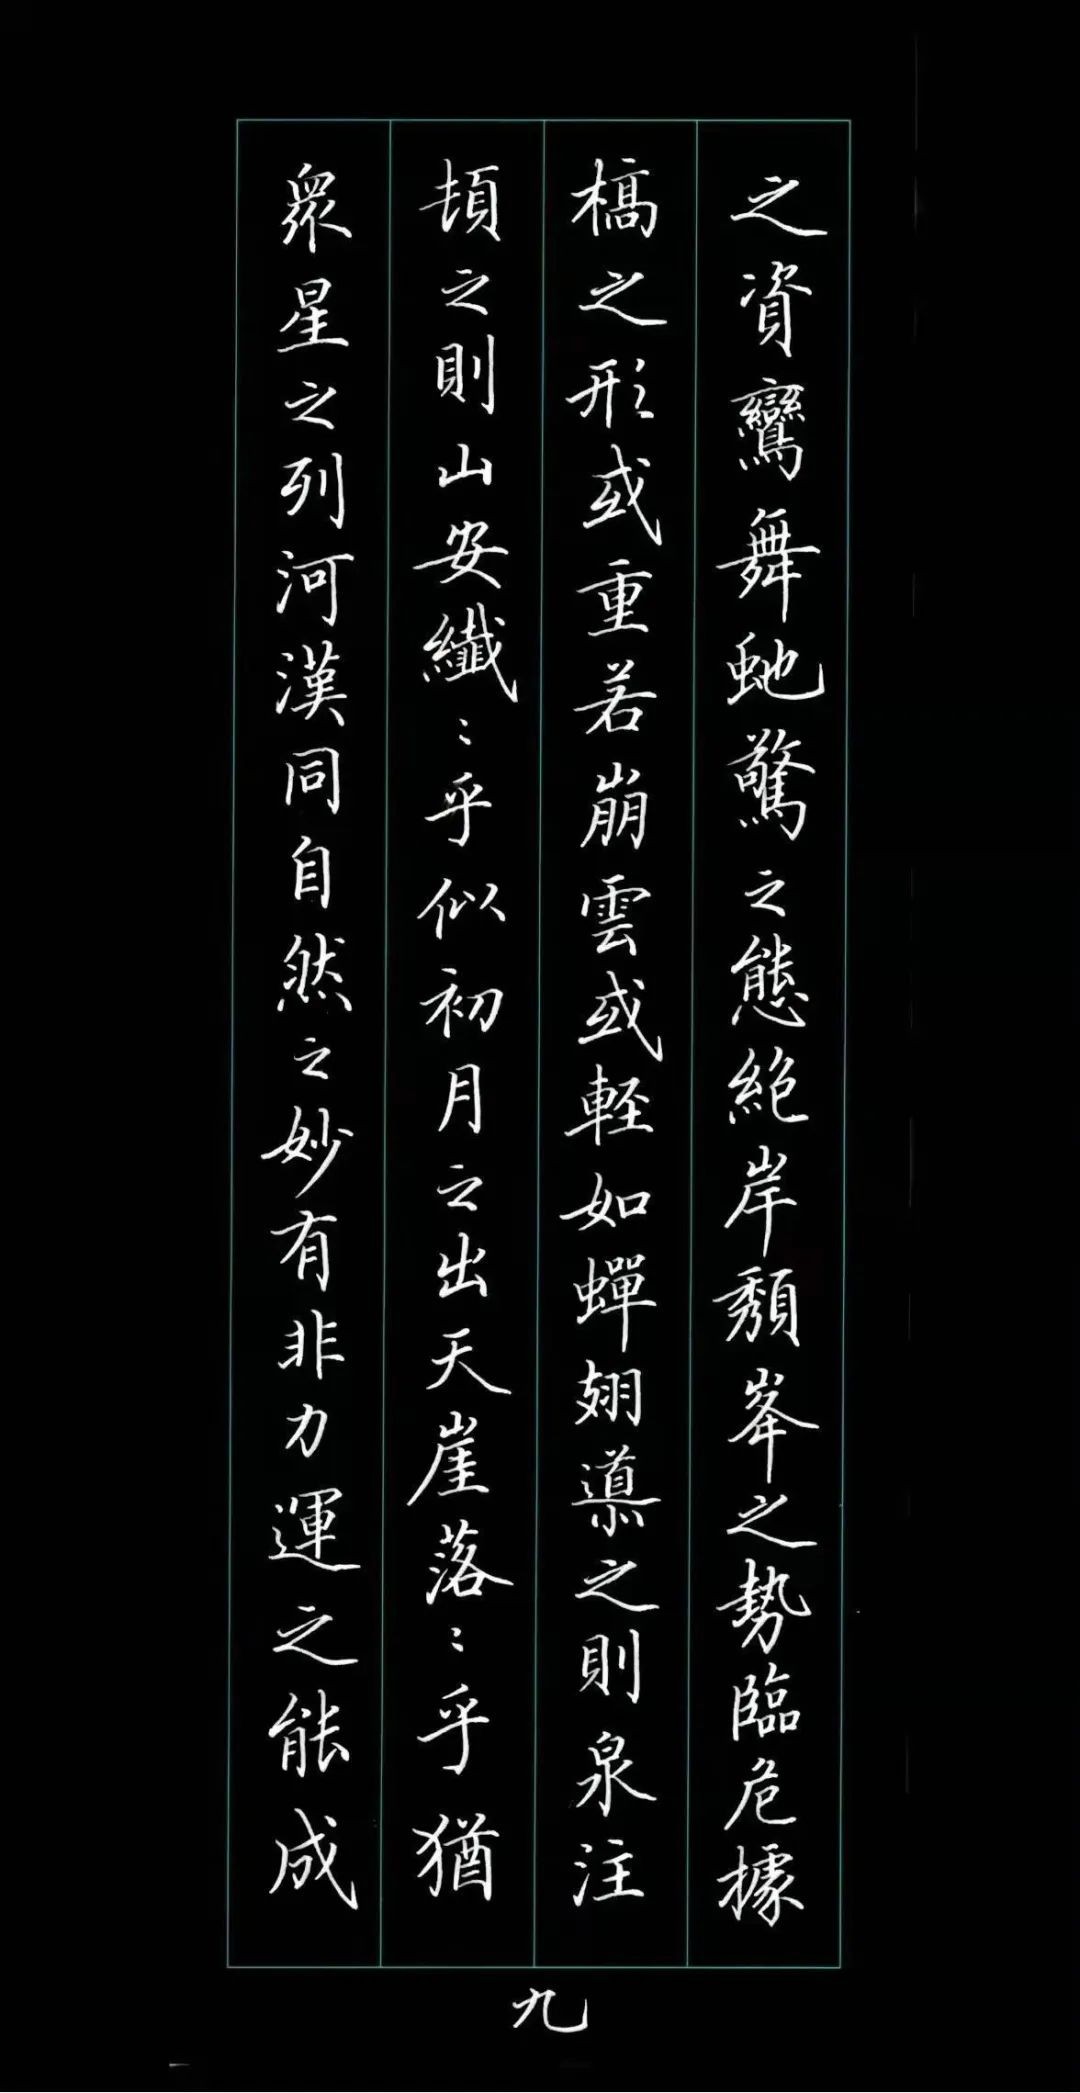 之資鸞舞虵驚之態絶岸頹峯之勢臨危據
槁之形或重若崩雲或輕如蟬翅導之則泉注
頓之則山安纖〻乎似初月之出天崖落〻乎猶
眾星之列河漢同自然之妙有非力運之能成
九